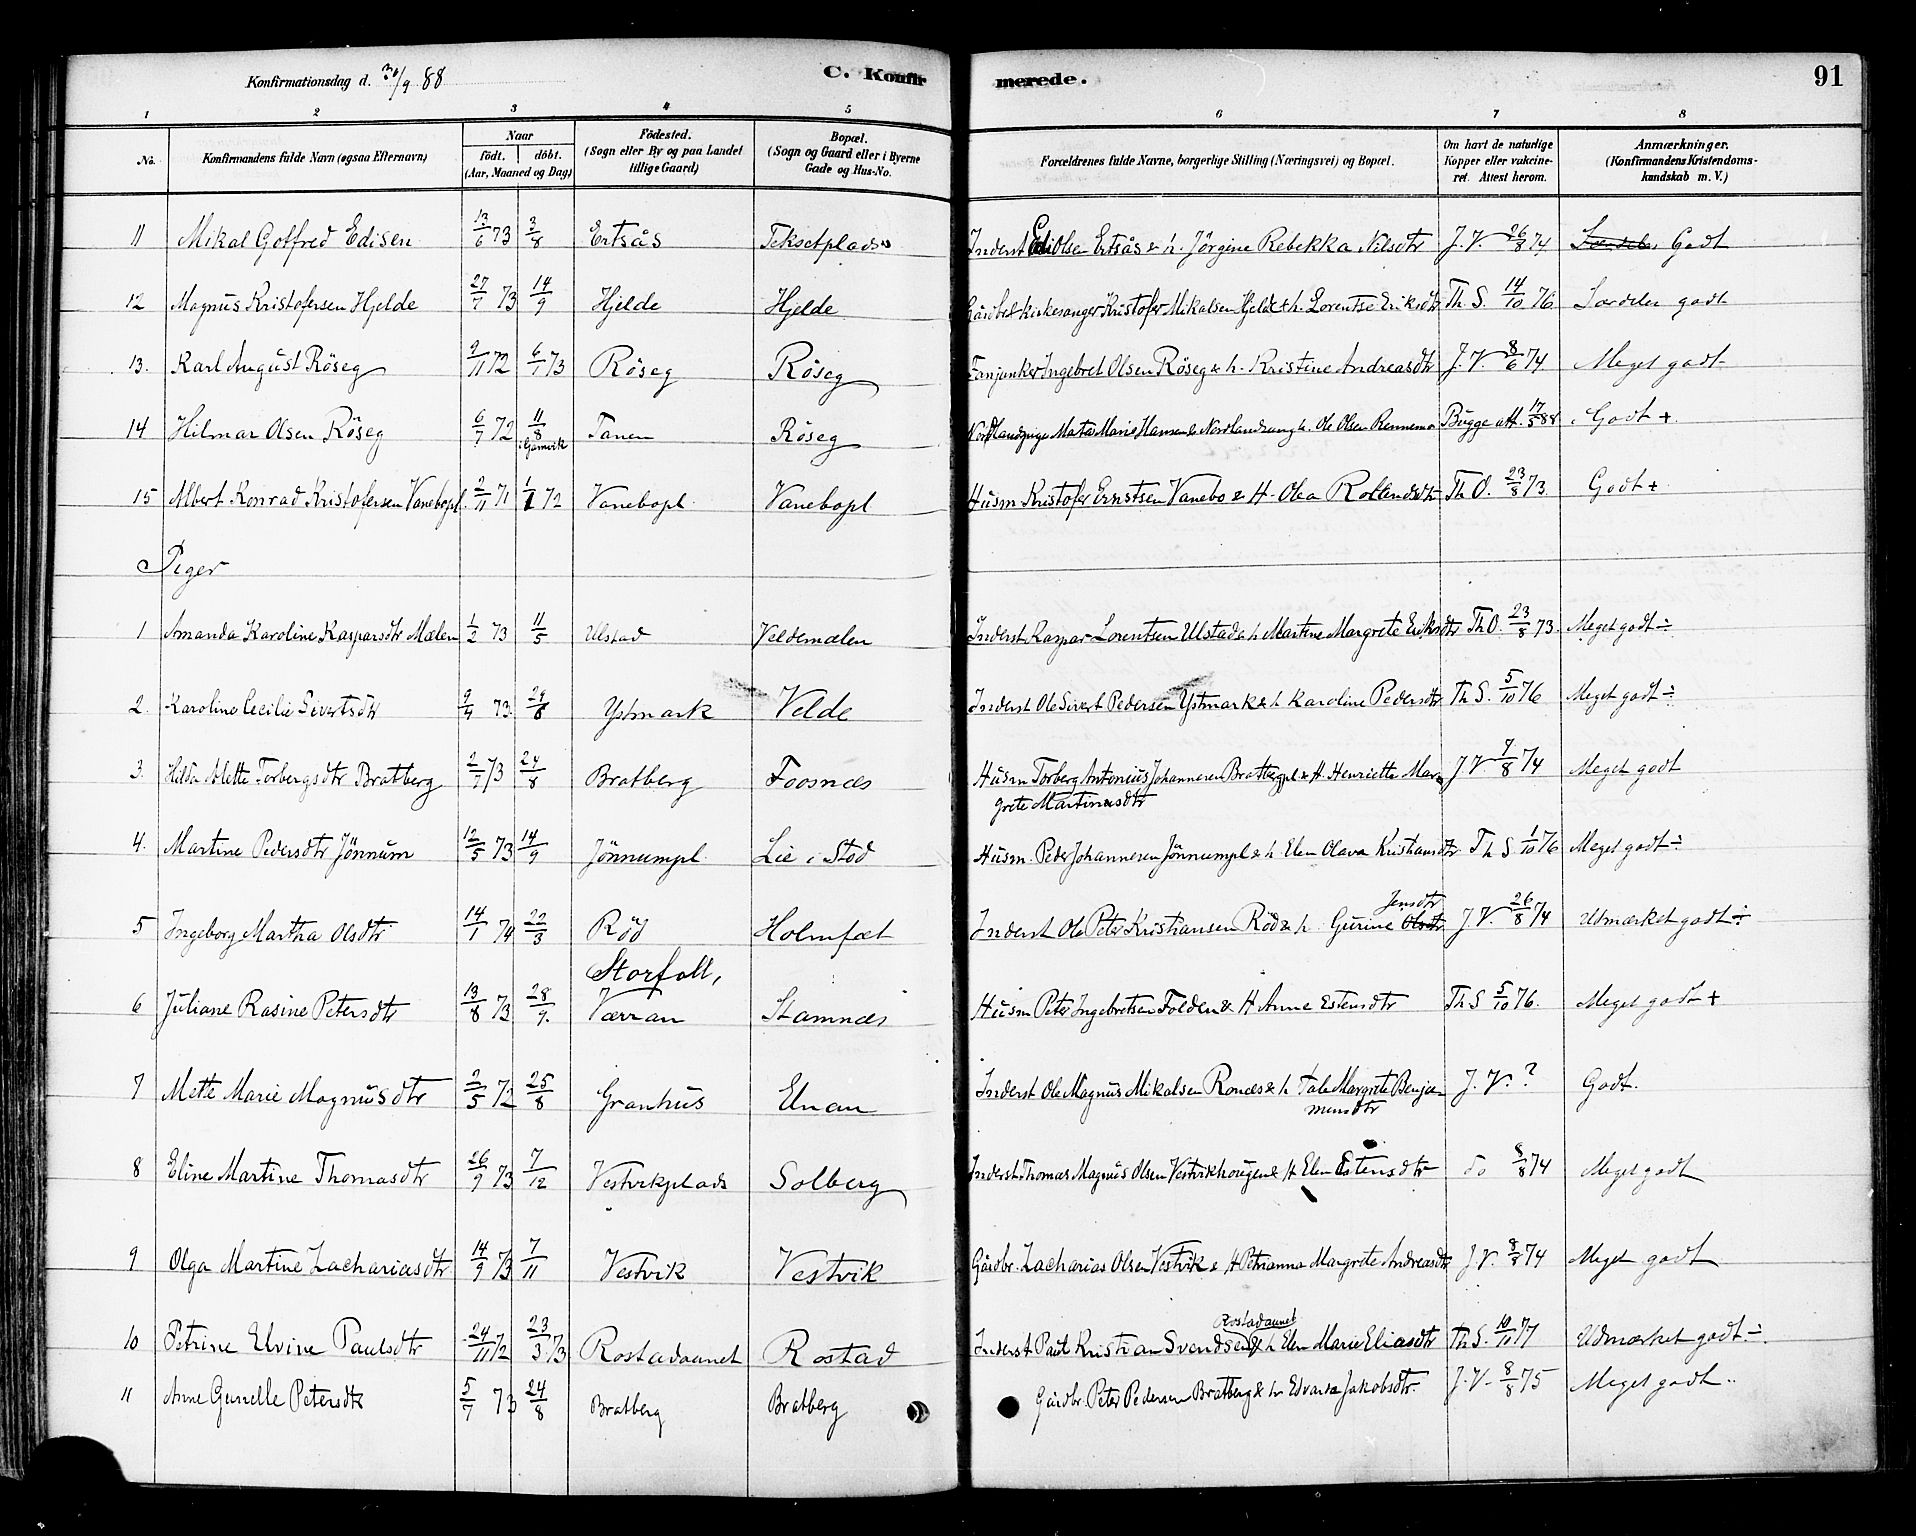 Konfirmationsdag d. 30/9 88 C. Konfirmerede. 91
1 2 3 4 5 6 7 8
No. Konfirmandens fulde Navn (øgsaa Efternavn) Naar födt. döbt. (Aar, Maaned og Dag) Födested. (Sogn eller By og paa Landet tillige Gaard) Bopæl. (Sogn og Gaard eller i Byerne Gade og Hus-No. Forældrenes fulde Navne, borgerlige Stilling (Næringsvei) og Bopæl. Om havt de naturlige Kopper eller vakcineret. Attest herom. Anmærkninger. (Konfirmandens Kristendomskundskab m. V.)
11 Mikal Gotfred Edisen 13/6 73 3/8 Ertsås Teksetplads Inderst Edi Olsen Ertsås & h. Jørgine Rebekka Nilsdtr J. V. 26/8 74. Godt
12 Magnus Kristofersen Hjelde 27/7 73 14/9 Hjelde Hjelde Gårdbr & kirkesanger Kristofer Mikalsen Hjelde & h. Lorentse Eriksdtr Th. S. 14/10 76 Særdeles godt
13. Karl August Röseg 9/11 72 6/1 73 Röseg Röseg Fanjunker Ingebret Olsen Röseg & h. Kristine Andreasdtr J. V. 8/6 74. Meget godt
14 Hilmar Olsen Röseg 6/7 72 11/8 i Gamvik Tanen Röseg Nordlandspige Marie Hansen & Nordlandsung k. Ole Olsen Rennemo Bugge att. 17/5 88 Godt +
15 Albert Konrad Kristofersen Vanebopl. 2/11 71 1/1 72 Vanebopl. Vanebopl Husm Kristofer Ernstsen Vanebo & H. Olea Rollendsdtr Th O. 23/8 73. Godt +
Piger
1 Amanda Karoline Kasparsdtr Mælen 1/2 73 11/5 Ulstad Veldemælen Inderst Kaspar Lorentsen Ulstad & h Martine Margrete Eriksdtr Th O. 23/8 73. Meget godt ÷
2. Karoline Cecilie Sivertsdtr 9/4 73. 24/8 Ystmark Velde Inderst Ole Sivert Pedersen Ystmark & h Karoline Pedersdtr Th S. 5/10 76 Meget godt ÷
3. Hilda Mette Torbergsdtr Bratberg 2/7 73 24/8 Bratberg Foosnæs Husm Torberg Antonius Johannesen Bratbergpl & H. Henriette Mar-
grete Martinusdtr J. V. 7/8 74 Meget godt
4. Martine Pedersdtr Jönnum 12/5 73 14/9 Jönnumpl. Lie i Stod Husm. Peder Johannesen Jönnumpl & h Elen Olava Kristiansdtr Th S 1/10 76 Meget godt ÷
5 Ingeborg Martha Olsdtr 14/1 74 22/3 Röd Holmfæt Inderst Ole Peter Kristiansen Röd & h. Gurine Olsdtr Jensdtr J. V. 26/8 74 Utmærket godt ÷
6 Juliane Rasine Petersdtr 13/8 73 28/9. Storfall, Værran Stamnæs Husm Peter Ingebretsen Folden & H Anne Estensdtr Th S 5/10 76. Meget godt +
7 Mette Marie Magnusdtr 2/5 72 25/8 Granhus Elnan Inderst Ole Magnus Mikalsen Ronæs & h Tale Margrete Benja-
minsdtr J. V. ? Godt.
8 Eline Martine Thomasdtr 26/9 73 7/12 Vestvikplads Solberg Inderst Thomas Magnus Olsen Vestvikhougen & H Elen Estensdtr Do 8/8 74 Meget godt
9 Olga Martine Zachariasdtr 14/9 73 7/11 Vestvik Vestvik Gårdbr. Zacharias Olsen Vestvik & H Petrianna Margrete Andreasdtr J. V. 8/8 74 Meget godt
10 Petrine Elvine Paulsdtr 24/11 72 23/3 73 Rostadaunet Rostad Inderst Paul Kristian Svendsen Rostadaunet & h Elen Marie Eliasdtr Th S. 10/11 77 Udmærket godt ÷.
11 Anne Gunelle Petersdtr 5/7 73 24/8 Bratberg Bratberg Gårdbr. Peter Pedersen Bratberg & h. Edvarda Jakobsdtr. J. V. 8/8 75 Meget godt